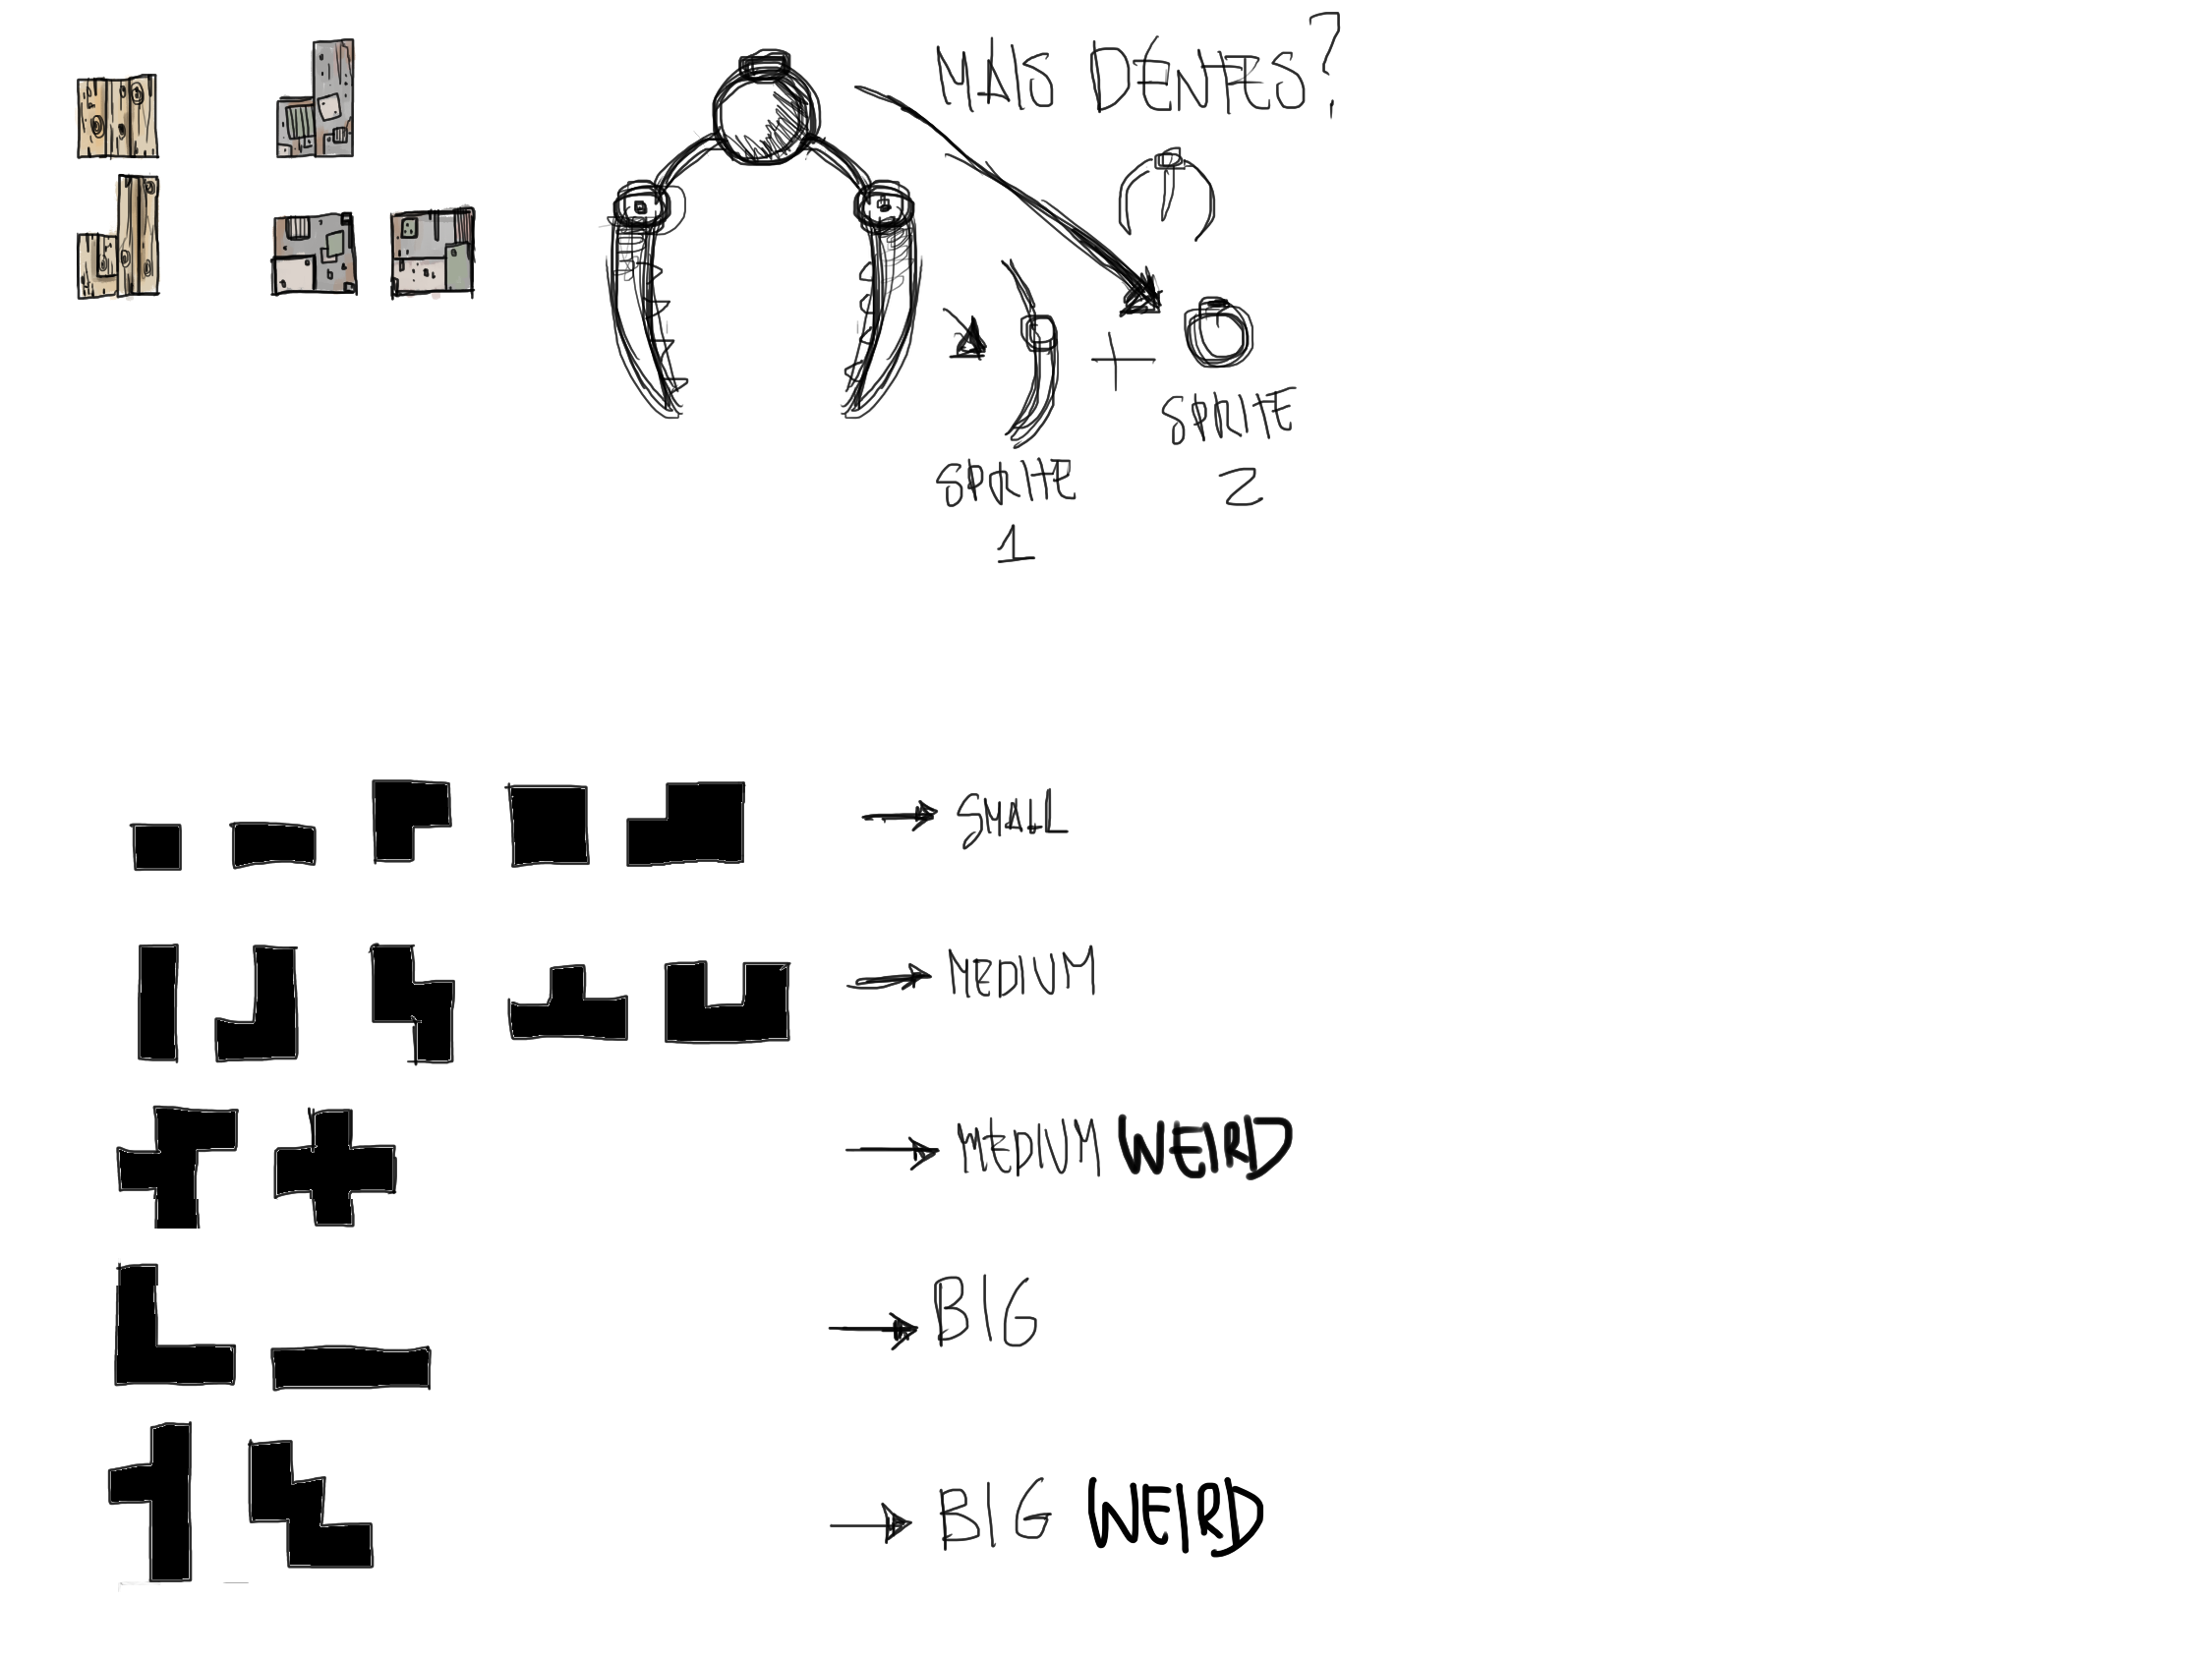 MAIS DENTES?
SPRITE
2
SPRITE
1
SMALL
MEDIUM
MEDIUM WEIRD
BIG
BIG WEIRD